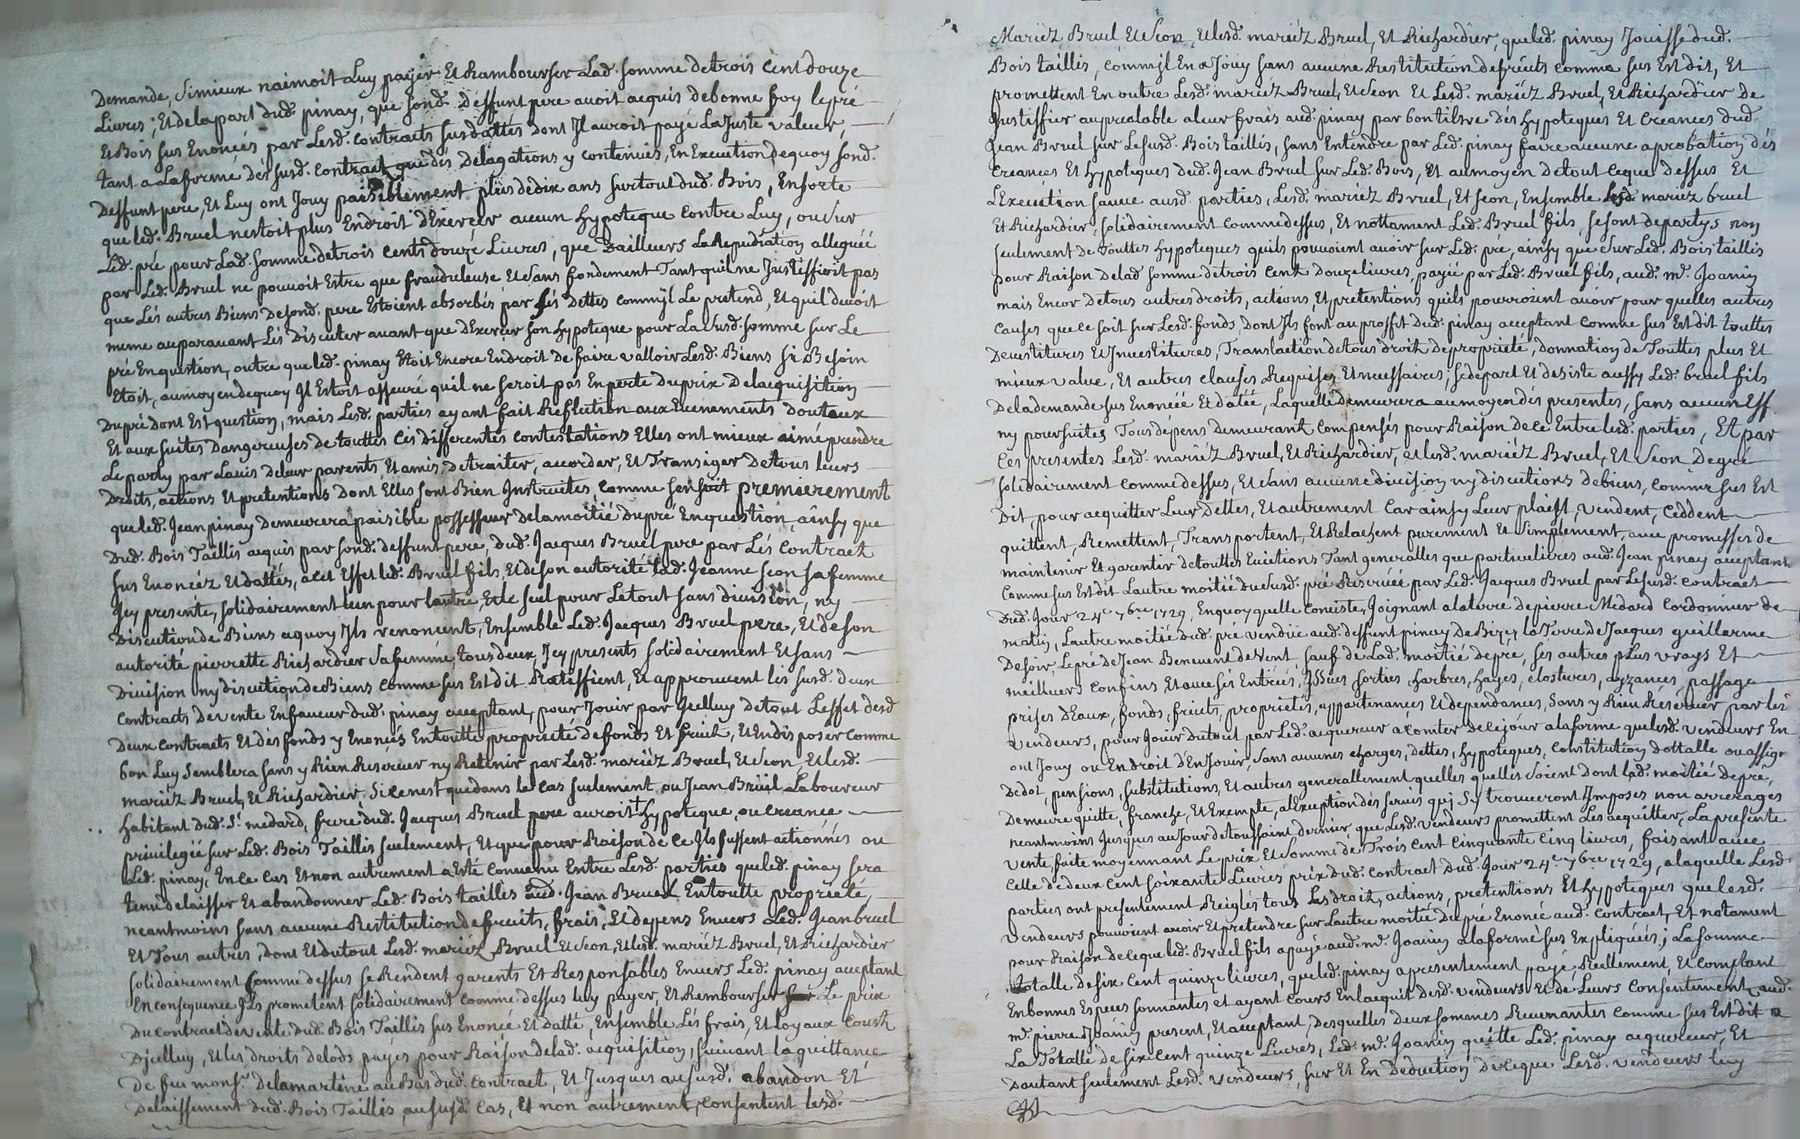 Demande, Simieux naimoit Luy payer Et Rambourser Lad. Somme detrois Cent Douze
Livres; Et delapart dud. pinay, que Sond. deffunt pere avoit acquis debonne foy lepré
Et Bois sus Enoncés par Lesd. Contracts susdattés dont Il auroit payé La Juste valeur,
tant a Laforme dés susd. contract que dés Delagations y contenues, En Execution dequoy sond.
Deffunt pere, Et Luy ont Jouy paisiblement plus dedix ans surtout dud. Bois, Ensorte
que led. Bruel nestoit plus Endroit dExercer aucun hypoteque Contre Luy, ou Sur
Led. pré pour Lad. Somme detrois cents douze Livres, que Dailleurs La Repudiation alleguéé
par Led. Bruel ne pouvoit Estre que frauduleuse Et sans fondement Tant quil ne Justiffioit pas
que Lés autres Biens desond. pere Estoient absorbés par sés Dettes comme jl Le pretend, Et quil devoit
meme auparavant Lés Discuter avant que dExercer son hypoteque pour La susd. somme sur Le
pré En question, outre que led. pinay Etoit Encore Endroit de faire valloir Lesd. Biens si Besoin
Etoit, aumoyendequoy Il Estoit asseuré quil ne seroit pas En perte duprix De lacquisition
Dupré dont Est question, mais Lesd. parties ayant fait Reflection aux Evenements Douteux
Et aux suites Dangereuses detouttes cés Differentes contestations Elles ont mieux aimé prendre
Le party par Lavis deleur parents Et amis De traiter, accorder, Et Transiger De tous leurs
Droits, actions Et pretentions Dont Elles sont Bien Instruites, Comme sensuit premierement
que led. Jean pinay Demeurera paisible possesseur Delamoitié Dupré En question, ainsy que
Dud. Bois Taillis acquis par sond. deffunt pere, dud. Jacques Bruel pere par Lés Contract
sus Enoncez Et dattés, a Cet Effet led. Bruel fils, Et deson autorité lad. Jeanne Seon sa femme
Icy presente, solidairement lun pour lautre, Et le seul pour Le tout sans division, ny
Discution de Biens a quoy Ils renoncent, Ensemble Led. Jacques Bruel pere, Et de son
autorité pierrette Richardier sa femme, tous deux Icy presents solidairement Et sans
Division ny discution de Biens comme sus Est dit Ratiffient, Et approuvent lés susd. deux
Contracts de vente Enfaveur dud. pinay acceptant, pour Jouir par Jcelluy detout Leffet desd.
Deux contracts Et dés fonds y Enoncés En toutte propriété de fonds Et fruit, Et En disposer comme
bon Luy semblera sans y Rien Reserver ny Retenir par Lesd. mariéz Bruel, Et Seon Et Lesd.
mariéz Bruel, Et Richardier, Si ce nest que dans le Cas seulement ou Jean Brüil Laboureur
habitant dud. St. medard, frere dud. Jacques Bruel pere auroit hypoteque, ou creance
privilegéé sur Led. Bois Taillis seulement, Et que pour Raison de ce Ils fussent actionnés ou
Led. pinay, En ce Cas Et non autrement a Eté Convenu Entre Lesd. parties que led. pinay sera
tenu delaisser Et abandonner Led. Bois tailles aud. Jean Bruel En toutte propriété,
neantmoins sans aucune Restitution de fruits, frais, Et depens Envers Led. Jean bruel
Et Tous autres, dont Et du tout Lesd. mariéz Bruel Et Seon, Et Lesd. mariéz Bruel, Et Richardier
solidairement Comme dessus se Rendent garents Et Responsables Envers Led. pinay acceptant
En consequence Ils prometent solidairement comme dessus Luy payer, Et Rembourser Le prix
Du contract de vente dud. Bois Taillis sus Enoncé Et datté, Ensemble Lés frais, Et loyaux Couts
Djcelluy, Et lés droits de lods payes pour Raison de lad. acquisition, suivant la quittance
de feu monsr. Delamartine au Bas dud. contract, Et Jusques au susd. abandon Et
Delaissement dud. Bois Taillis au susd. Cas, Et non autrement, consentent lesd.
Mariéz Bruel Et Seon, Et Lesd. mariéz Bruel, Et Richardier, que led. pinay Jouisse dud.
Bois taillis, comme jl En a Jouy sans aucune Restitution de fruits comme sus Est dit, Et
promettent En outre Lesd. mariéz Bruel, Et Seon Et Lesd. mariéz Bruel, Et Richardier de
Justiffier au prealable a leur frais aud. pinay par bon tiltre dés hypoteques Et Creances dud.
Jean Bruel sur Le susd. Bois taillis, sans Entendre par Led. pinay faire aucune aprobation dés
Creances Et hypoteques dud. Jean Bruel sur Led. Bois, Et au moyen de tout ceque dessus Et
LExecution sauve ausd. parties, Lesd. mariéz Bruel, Et Seon, Ensemble lesd. mariéz bruel
Et Richardier, solidairement Comme dessus, Et nottament Led. Bruel fils, se sont departys non
seulement de touttes hypoteques quils pouvoient avoir sur Led. pré, ainsy que sur Led. Bois taillis
pour Raison de lad. somme de trois Cent Douze livres, payée par Led. Bruel fils, aud. mr. Joanin
mais Encor de tous autres droits, actions, Et pretentions quils pourroient avoir pour quelles autres
causes que ce soit sur Lesd. fonds, dont Ils font au proffit dud. pinay acceptant comme sus Est dit touttes
Devestitures Et Investitures, Translaction de tous droit de propriété, donnation de Touttes plus Et
mieux value, Et autres clauses Requises, Et necessaires, se depart Et desiste aussy Led. bruel fils
De la demande sus Enoncéé Et datéé, Laquelle demeurera au moyen dés presentes, sans aucun Eff.
ny poursuites Tous depens demeurant Compensés pour Raison de ce Entre lesd. parties, Et par
Ces presentes Lesd. mariéz Bruel, Et Richardier, Et lesd. mariéz Bruel, Et Seon De gré
solidairement comme dessus, Et sans aucune division ny discutions de biens, comme sus Est
Dit, pour acquitter Leur Dettes, Et autrement Car ainsy Leur plaist, vendent, Ceddent
quittent, Remettent, Transportent, Et Relachent purement Et simplement, avec promesses de
maintenir Et garentir de touttes Evictions Tant generalles que particulieres aud. Jean pinay acceptant
Comme sus Est dit Lautre moitié du susd. pré Reservéé par Led. Jacques Bruel par Le susd. contract
Dud. Jour 24e. 7bre. 1729, En quoy quelle consiste, Joignant a la terre de pierre Medard Cordonnier de
matin, Lautre moitié dud. pré vendue aud. deffunt pinay De Bize, la Terre de Jacques guillerme
De soir, Le pré de Jean Benevent de vent, sauf de Lad. moitié de pré, sés autres plus vrays Et
meilleurs confins, Et avec sés Entrées, Issues sorties, harbres, hayes, clostures, ayzances, passage
prises dEaux, fonds, fruits, proprietés, appartenances Et dependances, sans y Rien Réserver par lés
vendeurs, pour Jouir du tout par Led. acquereur a Comter de ce jour a la forme que lesd. vendeurs En
ont Jouy ou En droit dEn Jouir, sans aucunes charges, Dettes, hypoteques, Constitution Dottalle ou assign
De dot, pensions, substitutions, Et autres generallement quelles quelles soient dont lad. moitié de pré,
Demeure quitte, franche, Et Exempte, a lExeption dés servis qui sy trouveront Imposés non arreragés
neantmoins Jusques au Jour de toussaint dernier, que Lesd. vendeurs promettent Lés acquitter, La presente
vente faite moyennant Le prix Et Somme de Trois Cent Cinquante Cinq livres, faisant avec
Celle de deux Cent soixante Livres prix dud. Contract dud. Jour 24e. 7bre 1729, a laquelle Lesd.
parties ont presentement Reiglés tous Les droit, actions, pretentions Et hypoteques que lesd.
vendeurs pouvoient avoir Et pretendre sur Lautre moitié de pré Enoncé aud. Contract, Et notament
pour Raison de ce que led. Bruel fils a payé aud. mr. Joanin a la forme sus Expliquéés; La somme
Totalle de six Cent quinze livres, que led. pinay a presentement payé Reellement, Et Comptant
En bonnes Especes sonnantes Et ayant Cours En lacquit desd. vendeurs Et de Leurs Consentement, aud.
mr. pierre Joanin present, Et acceptant, desquelles deux sommes Revenantes Comme sus Est dit a
La Totalle de six Cent quinze Livres, Led. mr. Joanin quitte Led. pinay acquereur, Et
Dautant seulement Lesd. vendeurs, sur Et En Deduction de ceque Lesd. vendeurs luy